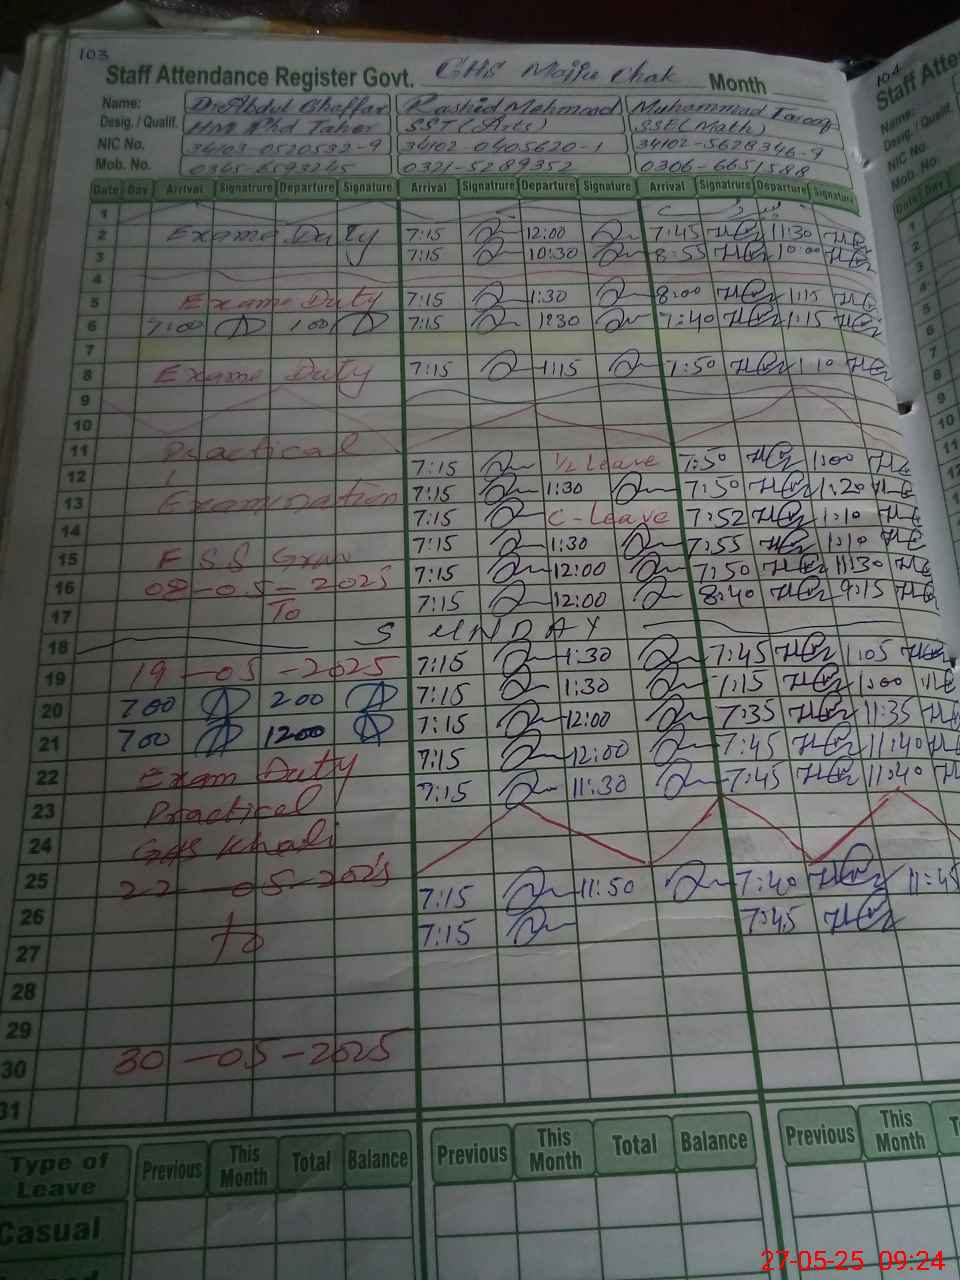 103
Staff Attendance Register Govt. GHS Majju Chak Month
Name: Dr Abdul Ghaffar Rashid Mehmood Muhammad Tarooq
Desig. / Qualif. HM Phd SST (Arts) SSE (Math)
NIC No. 34103-0520532-9 34102-0405620-1 34102-5628346-9
Mob. No. 0345-6593245 0321-5289352 0306-6651588
Date Day Arrival Signatrure Departure Signature Arrival Signatrure Departure Signature Arrival Signatrure Departure Signature
1
2 Exame Duty 7:15 12:00 7:45 11:30
3 7:15 10:30 8:55 10:00
4
5 Exame Duty 7:15 1:30 8:00 1:15
6 7:00 1:00 7:15 1:30 7:40 1:15
7
8 Exame Duty 7:15 1:15 7:50 1:10
9
10
11 Practical 7:15 1/2 Leave 7:50 1:00
12 7:15 1:30 7:50 1:20
13 Examination 7:15 C-Leave 7:52 1:10
14 7:15 1:30 7:55 1:10
15 7:15 12:00 7:50 11:30
16 08-05-2025 7:15 12:00 8:40 9:15
17 To
18 SUNDAY
19 19-05-2025 7:15 1:30 7:45 1:05
20 700 200 7:15 1:30 7:15 1:00
21 700 1200 7:15 12:00 7:35 11:35
22 Exam Duty 7:15 12:00 7:45 11:40
23 Practical 7:15 11:30 7:45 11:40
24 GHS Khali
25 22-05-2025 7:15 11:50 7:40 11:45
26 to 7:15 7:45
27
28
29
30 30-05-2025
31
Type of Leave Previous This Month Total Balance Previous This Month Total Balance Previous This Month
Casual
104
Staff Atte
Name:
Desig. / Qualif.
NIC No.
Mob. No.
Date Day
1
2
3
4
5
6
7
8
9
10
11
27-05-25 09:24